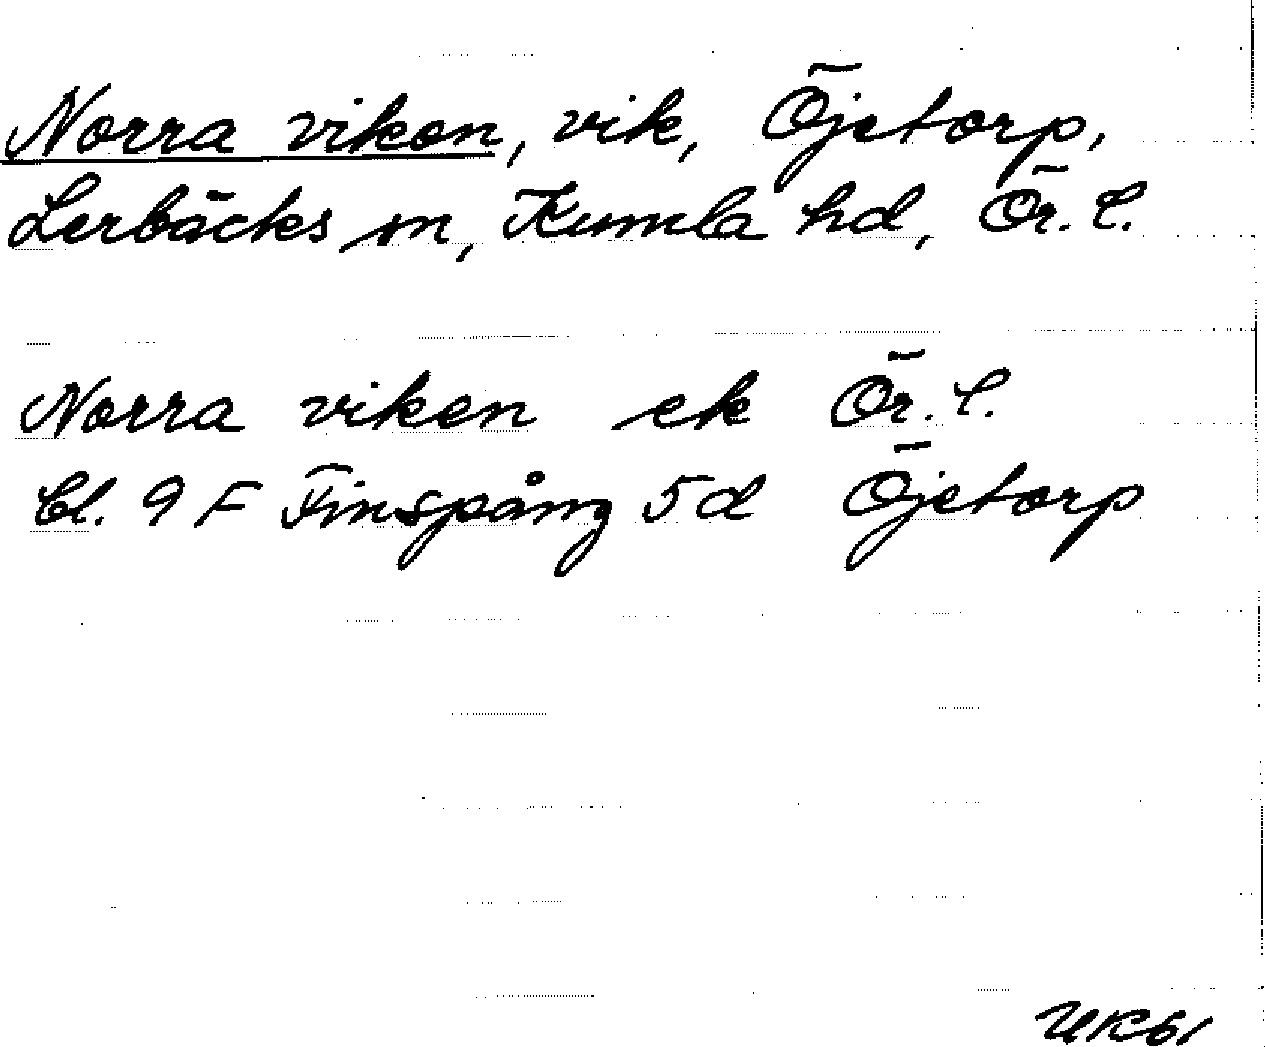 Norra viken, vik, Öjetorp,
Lerbäcks sn, Kumla hd, Ör. l.
Norra viken ek Ör. l.
Bl. 9 F Finspång 5d Öjetorp
UK61